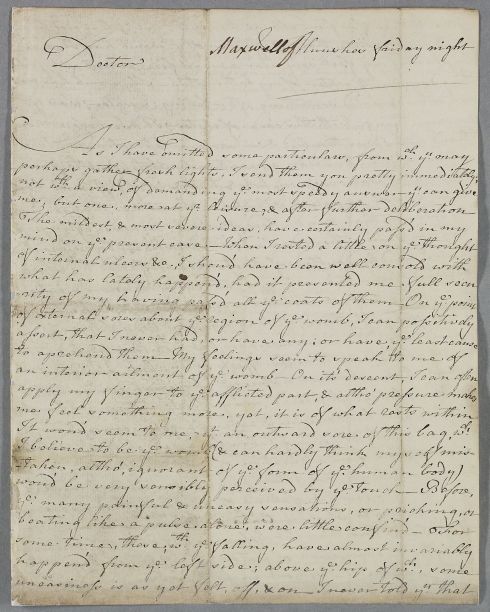 Maxwell friday night
Doctor
As I have omitted some particulars, from wch. ye. may
perhaps gather fresh lights, I send them you pretty immediately;
not wth. a view, of demanding ye. most speedy answer ye. can give
me; but one, more at ye. leisure, & after further deliberation
The mildest, & most severe ideas, have certainly pass'd in my
mind on ye. present case - When I rested a little, on ye. thought
of internal ulcers &c, I shou'd have been well consol'd with
what has lately happen'd, had it presented me full secu
rity of my having pass'd all ye. coats of them - On ye. point
of external sores about ye. region of ye. womb, I can positively
assert, that I never had, or have any; or have, ye. least cause
to aprehend them - My feelings seem to speak to me of
an interior ailment of ye. womb - On its descent, I can often
apply my finger to ye. afflicted part, & altho' pressure makes
me feel something more, yet, it is of what rests within
It wou'd seem to me, yt. an outward sore of this bag, wch.
I believe to be ye. womb (& can hardly think myself mis
taken, altho' ignorant of ye. form of ye. human body)
wou'd be very sensibly perceived by ye. touch - Before,
ye. many painful & uneasy sensations, or poiching, or
beating like a pulse alone, were little confin'd - For
some time, these, wth. ye. falling, have almost invariably
happen'd from ye. left side; above ye. hip of wch., some
uneasiness is as yet felt, off, & on I never told yu. that